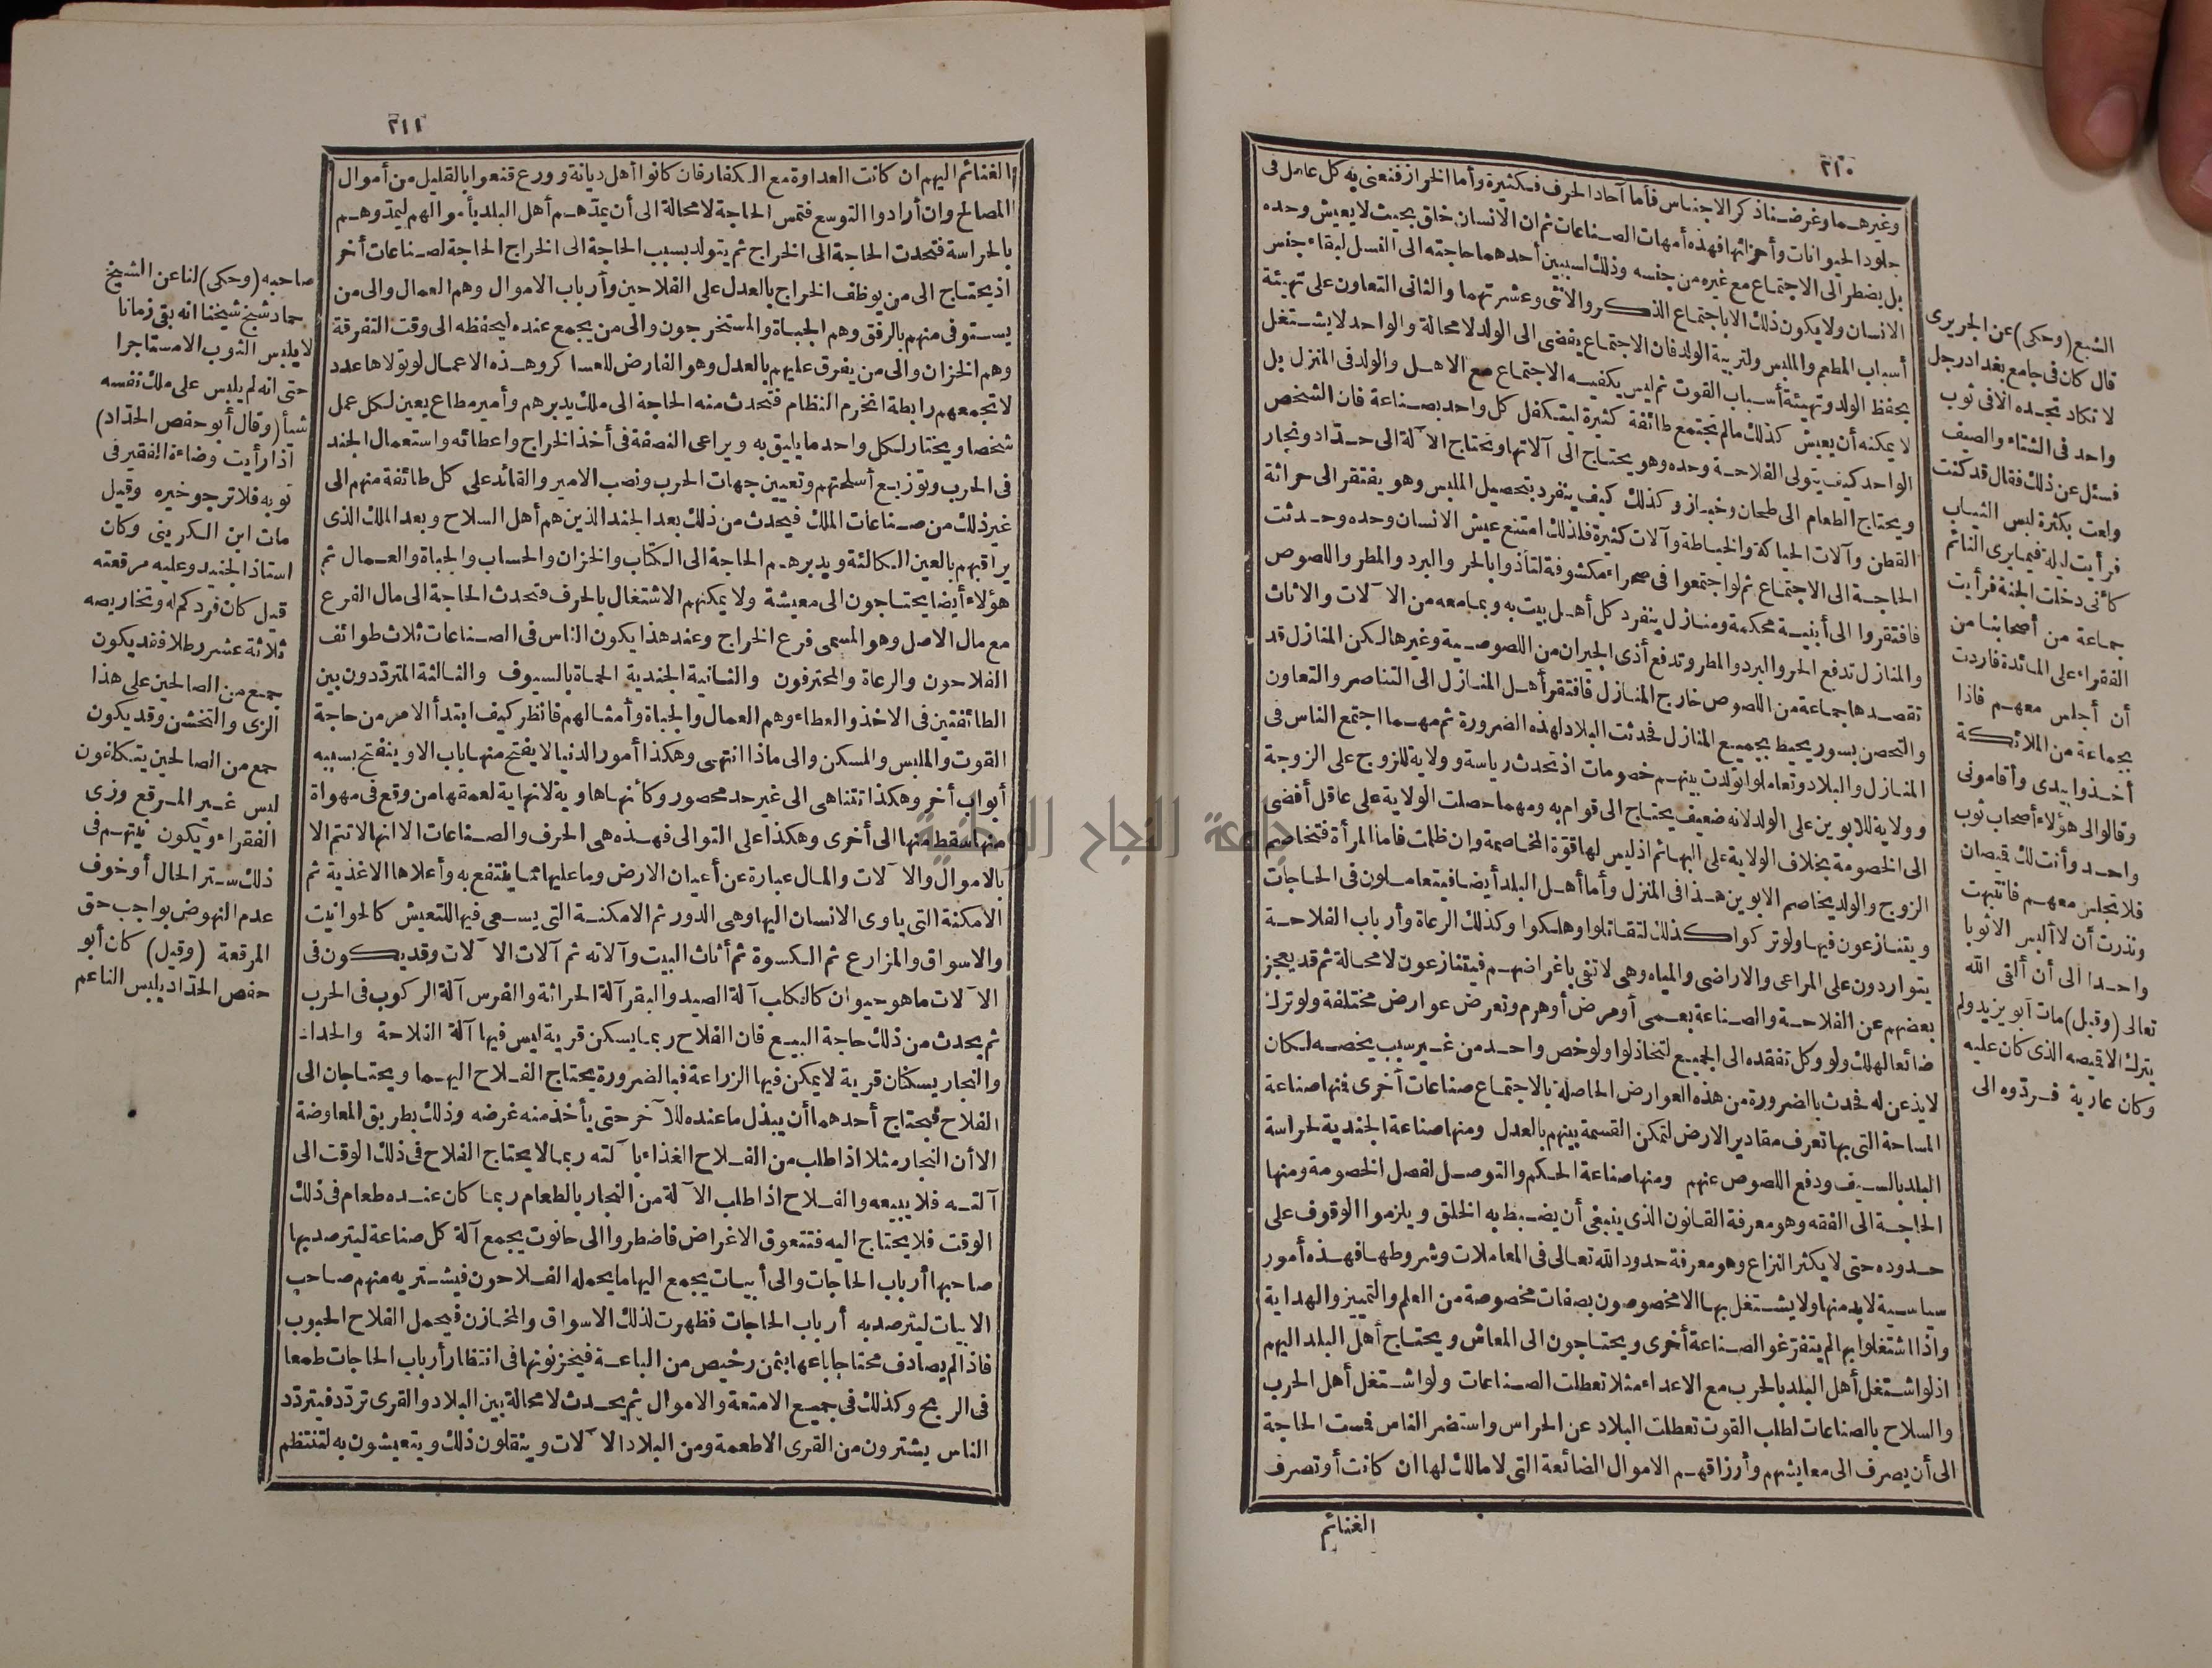 ٢١٠
وغيرهما وغرضنا ذكر الاجناس فأما آحاد الحرف فكثيرة وأما الخراز فنعنى به كل عامل فى
جلود الحيوانات وأجزائها فهذه أمهات الصناعات ثم ان الانسان خلق بحيث لا يعيش وحده
بل يضطر الى الاجتماع مع غيره من جنسه وذلك لسببين أحدهما حاجته الى النسل لبقاء جنس
الانسان ولا يكون ذلك الا باجتماع الذكر والانثى وعشرتهما والثانى التعاون على تهيئة
أسباب المطعم والملبس ولتربية الولد فان الاجتماع يفضى الى الولد لا محالة والواحد لا يشتغل
بحفظ الولد وتهيئة أسباب القوت ثم ليس يكفيه الاجتماع مع الاهل والولد فى المنزل بل
لا يمكنه أن يعيش كذلك مالم تجتمع طائفة كثيرة ليتكفل كل واحد بصناعة فان الشخص
الواحد كيف يتولى الفلاحة وحده وهو يحتاج الى آلاتها وتحتاج الآلة الى حداد ونجار
ويحتاج الطعام الى طحان وخباز وكذلك كيف ينفرد بتحصيل الملبس وهو يفتقر الى حراثة
القطن وآلات الحياكة والخياطة وآلات كثيرة فلذلك امتنع عيش الانسان وحده وحدثت
الحاجة الى الاجتماع ثم لو اجتمعوا فى صحراء مكشوفة لتأذوا بالحر والبرد والمطر واللصوص
فافتقروا الى أبنية محكمة ومنازل ينفرد كل أهل بيت به وبما معه من الآلات والاثاث
والمنازل تدفع الحر والبرد والمطر وتدفع أذى الجيران من اللصوصية وغيرها لكن المنازل قد
تقصدها جماعة من اللصوص خارج المنازل فافتقر أهل المنازل الى التناصر والتعاون
والتحصن بسور يحيط بجميع المنازل فحدثت البلاد لهذه الضرورة ثم مهما اجتمع الناس فى
المنازل والبلاد وتعاملوا تولدت بينهم خصومات اذ تحدث رياسة وولاية للزوج على الزوجة
وولاية للابوين على الولد لانه ضعيف يحتاج الى قوام به ومهما حصلت الولاية على عاقل أفضى
الى الخصومة بخلاف الولاية على البهائم اذ ليس لها قوة المخاصمة وان ظلمت فاما المرأة فتخاصم
الزوج والولد يخاصم الابوين هذا فى المنزل وأما أهل البلد أيضا فيتعاملون فى الحاجات
ويتنازعون فيها ولو تركوا كذلك لتقاتلوا وهلكوا وكذلك الرعاة وأرباب الفلاحة
يتواردون على المراعى والاراضى والمياه وهى لا تفى باغراضهم فيتنازعون لا محالة ثم قد يعجز
بعضهم عن الفلاحة والصناعة بعمى أو مرض أو هرم وتعرض عوارض مختلفة ولو ترك
ضائعا لهلك ولو وكل تفقده الى الجميع لتخاذلوا ولو خص واحد من غير سبب يخصه لكان
لا يذعن له فحدث بالضرورة من هذه العوارض الحاصلة بالاجتماع صناعات أخرى فنها صناعة
المساحة التى بها تعرف مقادير الارض لتمكن القسمة بينهم بالعدل ومنها صناعة الجندية لحراسة
البلد بالسيف ودفع اللصوص عنهم ومنها صناعة الحكم والتوصل لفصل الخصومة ومنها
الحاجة الى الفقه وهو معرفة القانون الذى ينبغى أن يضبط به الخلق ويلزموا الوقوف على
حدوده حتى لا يكثر النزاع وهو معرفة حدود الله تعالى فى المعاملات وشروطها فهذه أمور
سياسية لا بد منها ولا يشتغل بها الا مخصوصون بصفات مخصوصة من العلم والتمييز والهداية
واذا اشتغلوا بها لم يتفرغوا لصناعة أخرى ويحتاجون الى المعاش ويحتاج أهل البلد اليهم
اذ لو اشتغل أهل البلد بالحرب مع الاعداء مثلا تعطلت الصناعات ولو اشتغل أهل الحرب
والسلاح بالصناعات لطلب القوت تعطلت البلاد عن الحراس واستضر الناس فمست الحاجة
الى أن يصرف الى معايشهم وأرزاقهم الاموال الضائعة التى لا مالك لها ان كانت أو تصرف
الغنائم
الشبع (وحكى) عن الجريرى
قال كان فى جامع بغداد رجل
لا تكاد تجده الا فى ثوب
واحد فى الشتاء والصيف
فسئل عن ذلك فقال قد كنت
ولعت بكثرة لبس الثياب
فرأيت ليلة فيما يرى النائم
كأنى دخلت الجنة فرأيت
جماعة من أصحابنا من
الفقراء على المائدة فاردت
أن أجلس معهم فاذا
بجماعة من الملائكة
أخذوا بيدى وأقامونى
وقالوا لى هؤلاء أصحاب ثوب
واحد وأنت لك قيصان
فلا تجلس معهم فانتبهت
ونذرت أن لا ألبس الا ثوبا
واحدا الى أن ألقى الله
تعالى (وقيل) مات أبو يزيد ولم
يترك الا قيصه الذى كان عليه
وكان عارية فردوه الى
٢١١
الغنائم اليهم ان كانت العداوة مع الكفار فان كانوا أهل ديانة وورع قنعوا بالقليل من أموال
المصالح وان أرادوا التوسع فتمس الحاجة لا محالة الى أن يمدهم أهل البلد بأموالهم ليمدوهم
بالحراسة فتحدث الحاجة الى الخراج ثم يتولد بسبب الحاجة الى الخراج الحاجة لصناعات أخر
اذ يحتاج الى من يوظف الخراج بالعدل على الفلاحين وأرباب الاموال وهم العمال والى من
يستوفى منهم بالرفق وهم الجباة والمستخرجون والى من يجمع عنده ليحفظه الى وقت التفرقة
وهم الخزان والى من يفرق عليهم بالعدل وهو الفارض للعساكر وهذه الاعمال لو تولاها عدد
لا تجمعهم رابطة انخرم النظام فتحدث منه الحاجة الى ملك يدبرهم وأمير مطاع يعين لكل عمل
شخصا ويختار لكل واحد ما يليق به ويراعى النصفة فى أخذ الخراج واعطائه واستعمال الجند
فى الحرب وتوزيع أسلحتهم وتعيين جهات الحرب ونصب الامير والقائد على كل طائفة منهم الى
غير ذلك من صناعات الملك فيحدث من ذلك بعد الجند الذين هم أهل السلاح وبعد الملك الذى
يراقبهم بالعين الكالئة ويدبرهم الحاجة الى الكتاب والخزان والحساب والجباة والعمال ثم
هؤلاء أيضا يحتاجون الى معيشة ولا يمكنهم الاشتغال بالحرف فتحدث الحاجة الى مال الفرع
مع مال الاصل وهو المسمى فرع الخراج وعند هذا يكون الناس فى الصناعات ثلاث طوائف
الفلاحون والرعاة والمحترفون والثانية الجندية الحماة بالسيوف والثالثة المترددون بين
الطائفتين فى الاخذ والعطاء وهم العمال والجباة وأمثالهم فانظر كيف ابتدأ الامر من حاجة
القوت والملبس والمسكن والى ماذا انتهى وهكذا أمور الدنيا لا يفتح منها باب الا وينفتح بسببه
أبواب أخر وهكذا تتناهى الى غير حد محصور وكأنها هاوية لا نهاية لعمقها من وقع فى مهواة
منها سقط منها الى أخرى وهكذا على التوالى فهذه هى الحرف والصناعات الا انها لا تتم الا
بالاموال والآلات والمال عبارة عن أعيان الارض وما عليها مما ينتفع به وأعلاها الاغذية ثم
الامكنة التى ياوى الانسان اليها وهى الدور ثم الامكنة التى يسعى فيها للتعيش كالحوانيت
والاسواق والمزارع ثم الكسوة ثم أثاث البيت وآلاته ثم آلات الآلات وقد يكون فى
الآلات ما هو حيوان كالكلب آلة الصيد والبقر آلة الحراثة والفرس آلة الركوب فى الحرب
ثم يحدث من ذلك حاجة البيع فان الفلاح ربما يسكن قرية ليس فيها آلة الفلاحة والحداد
والنجار يسكنان قرية لا يمكن فيها الزراعة فبالضرورة يحتاج الفلاح اليهما ويحتاجان الى
الفلاح فيحتاج أحدهما أن يبذل ما عنده للآخر حتى يأخذ منه غرضه وذلك بطريق المعاوضة
الا أن النجار مثلا اذا طلب من الفلاح الغذاء بآلته ربما لا يحتاج الفلاح فى ذلك الوقت الى
آلته فلا يبيعه والفلاح اذا طلب الآلة من النجار بالطعام ربما كان عنده طعام فى ذلك
الوقت فلا يحتاج اليه فتتعوق الاغراض فاضطروا الى حانوت يجمع آلة كل صناعة ليترصد بها
صاحبها أرباب الحاجات والى أبيات يجمع اليها ما يحمله الفلاحون فيشتريه منهم صاحب
الابيات ليترصد به أرباب الحاجات فظهرت لذلك الاسواق والمخازن فيحمل الفلاح الحبوب
فاذا لم يصادف محتاجا باعها بثمن رخيص من الباعة فيخزنونها فى انتظار أرباب الحاجات طمعا
فى الربح وكذلك فى جميع الامتعة والاموال ثم يحدث لا محالة بين البلاد والقرى تردد فيتردد
الناس يشترون من القرى الاطعمة ومن البلاد الآلات وينقلون ذلك ويتعيشون به لتنتظم
صاحبه (وحكى) لنا عن الشيخ
حماد شيخ شيخنا انه بقى زمانا
لا يلبس الثوب الا مستاجرا
حتى انه لم يلبس على ملك نفسه
شيأ (وقال أبو حفص الحداد)
اذا رأيت وضاءة الفقير فى
ثوبه فلا ترجو خيره وقيل
مات ابن الكرينى وكان
استاذ الجنيد وعليه مرقعته
قيل كان فرد كم له وتخاريصه
ثلاثة عشر رطلا فقد يكون
جمع من الصالحين على هذا
الزى والتخشن وقد يكون
جمع من الصالحين يتكلفون
لبس غير المرقع وزى
الفقراء ويكون نيتهم فى
ذلك ستر الحال أو خوف
عدم النهوض بواجب حق
المرقعة (وقيل) كان أبو
حفص الحداد يلبس الناعم
جامعة النجاح الوطنية